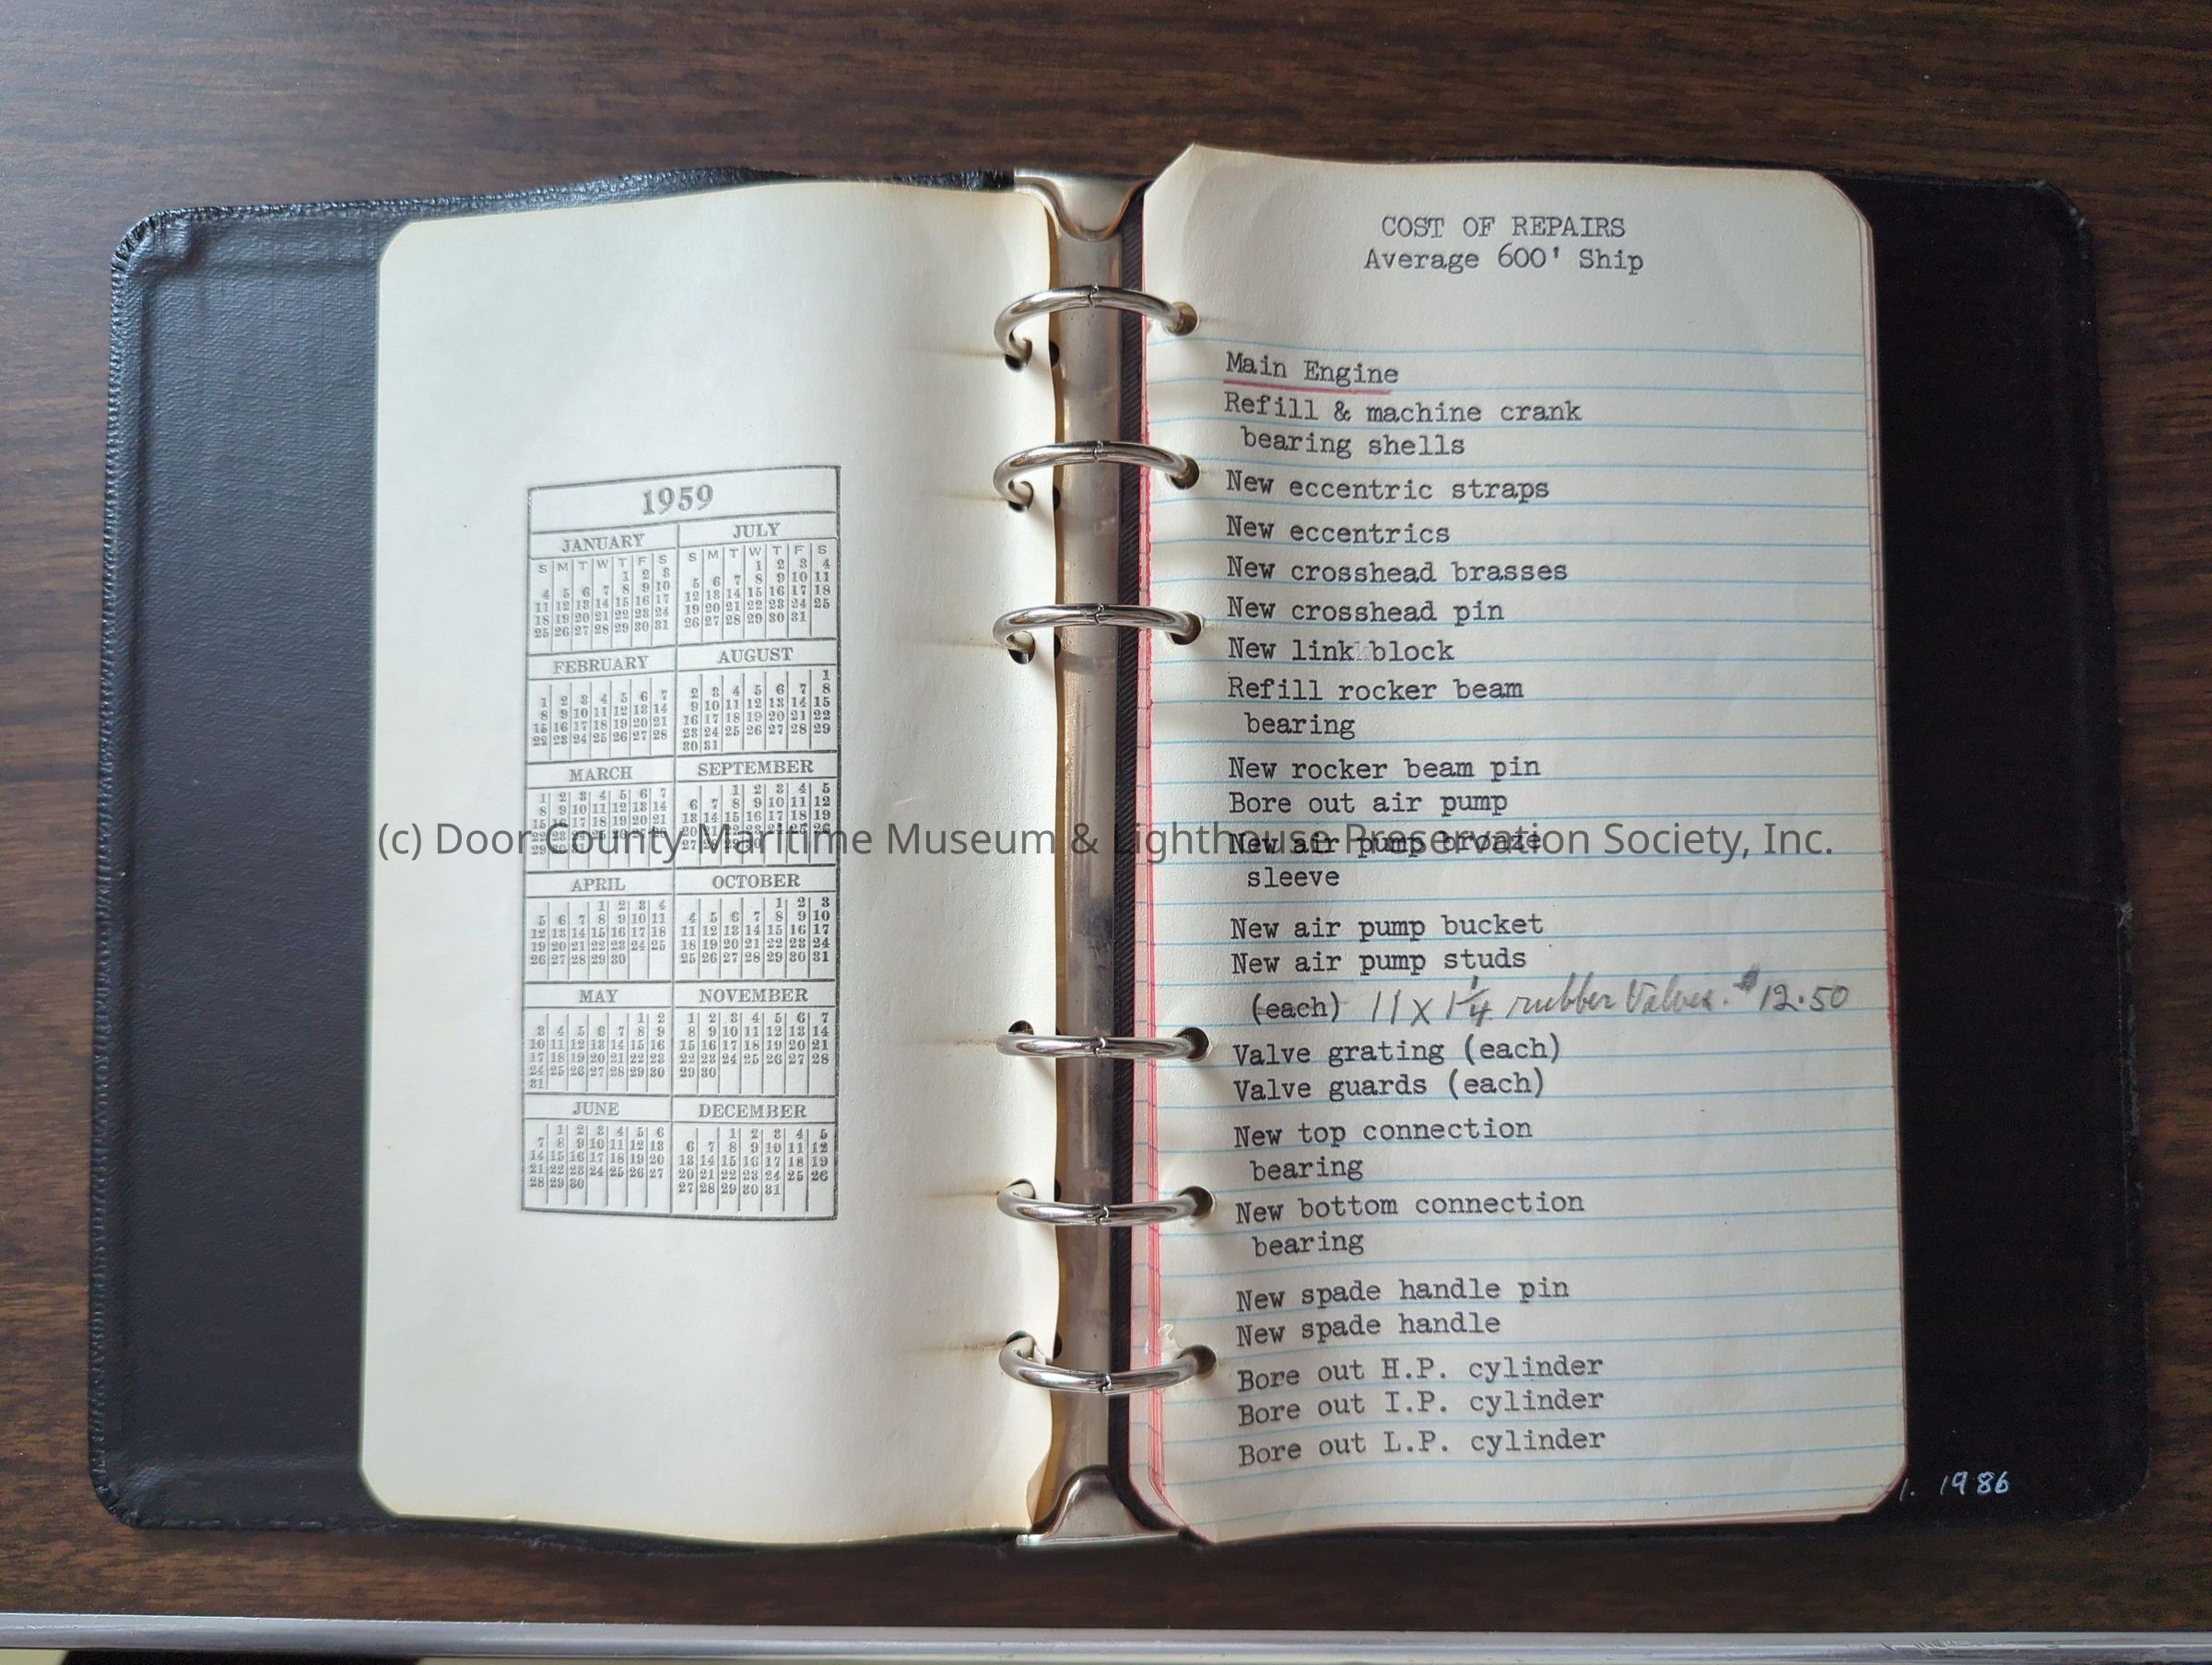 1959
JANUARY
S M T W T F S
1 2 3
4 5 6 7 8 9 10
11 12 13 14 15 16 17
18 19 20 21 22 23 24
25 26 27 28 29 30 31
FEBRUARY
1 2 3 4 5 6 7
8 9 10 11 12 13 14
15 16 17 18 19 20 21
22 23 24 25 26 27 28
MARCH
1 2 3 4 5 6 7
8 9 10 11 12 13 14
15 16 17 18 19 20 21
APRIL
1 2 3 4
5 6 7 8 9 10 11
12 13 14 15 16 17 18
19 20 21 22 23 24 25
26 27 28 29 30
MAY
1 2
3 4 5 6 7 8 9
10 11 12 13 14 15 16
17 18 19 20 21 22 23
24 25 26 27 28 29 30
31
JUNE
1 2 3 4 5 6
7 8 9 10 11 12 13
14 15 16 17 18 19 20
21 22 23 24 25 26 27
28 29 30
JULY
S M T W T F S
1 2 3 4
5 6 7 8 9 10 11
12 13 14 15 16 17 18
19 20 21 22 23 24 25
26 27 28 29 30 31
AUGUST
1
2 3 4 5 6 7 8
9 10 11 12 13 14 15
16 17 18 19 20 21 22
23 24 25 26 27 28 29
30 31
SEPTEMBER
1 2 3 4 5
6 7 8 9 10 11 12
13 14 15 16 17 18 19
OCTOBER
1 2 3
4 5 6 7 8 9 10
11 12 13 14 15 16 17
18 19 20 21 22 23 24
25 26 27 28 29 30 31
NOVEMBER
1 2 3 4 5 6 7
8 9 10 11 12 13 14
15 16 17 18 19 20 21
22 23 24 25 26 27 28
29 30
DECEMBER
1 2 3 4 5
6 7 8 9 10 11 12
13 14 15 16 17 18 19
20 21 22 23 24 25 26
27 28 29 30 31
COST OF REPAIRS
Average 600' Ship
Main Engine
Refill & machine crank
bearing shells
New eccentric straps
New eccentrics
New crosshead brasses
New crosshead pin
New link block
Refill rocker beam
bearing
New rocker beam pin
Bore out air pump
New air pump bronze
sleeve
New air pump bucket
New air pump studs
(each) 11 x 1 1/4 rubber Valves. $12.50
Valve grating (each)
Valve guards (each)
New top connection
bearing
New bottom connection
bearing
New spade handle pin
New spade handle
Bore out H.P. cylinder
Bore out I.P. cylinder
Bore out L.P. cylinder
1. 1986
(c) Door County Maritime Museum & Lighthouse Preservation Society, Inc.